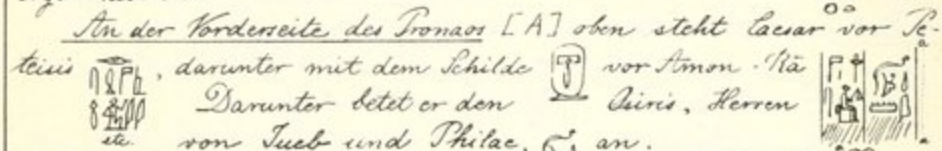 An der Vorderseite des Pronaos [A] oben steht Caesar vor Pe-
teisis, darunter mit dem Schilde vor Amon-Râ
Darunter betet er den Osiris, Herren
etc. von Tueb und Philae, an.